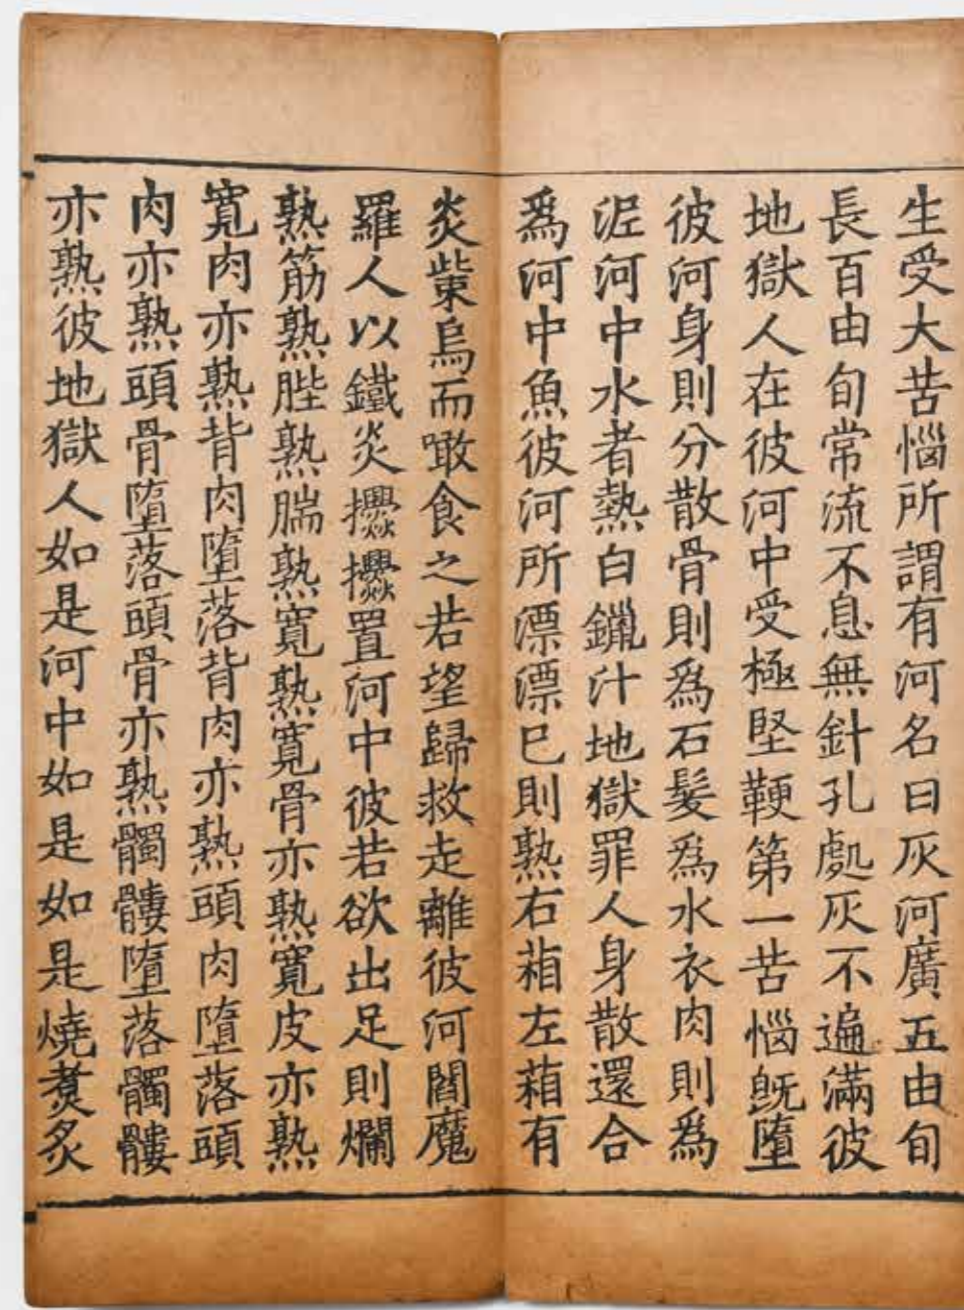 生受大苦惱所謂有河名曰灰河廣五由旬
長百由旬常流不息無針孔處灰不遍滿彼
地獄人在彼河中受極堅鞕第一苦惱旣墮
彼河身則分散骨則爲石髮爲水衣肉則爲
泥河中水者熱白鑞汁地獄罪人身散還合
爲河中魚彼河所漂漂已則熟右葙左葙有
炎𭪿烏而噉食之若望歸救走離彼河閻魔
羅人以鐵炎攀攀置河中彼若欲出足則爛
熟筋熟䏶熟腨熟寬熟寬骨亦熟寬皮亦熟
寬肉亦熟背肉墮落背肉亦熟頭肉墮落頭
肉亦熟頭骨墮落頭骨亦熟髑髏墮落髑髏
亦熟彼地獄人如是河中如是如是燒煑炙